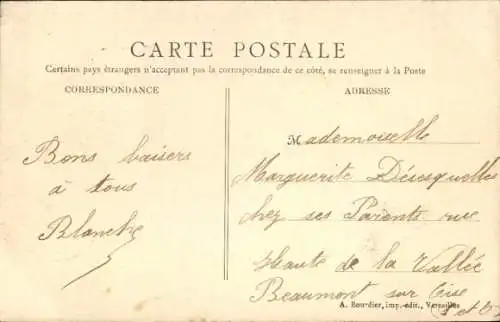 CARTE POSTALE
Certains pays étrangers n'acceptant pas la correspondance de ce côté, se renseigner à la Poste
CORRESPONDANCE
ADRESSE
Bons baisers
à tous
Blanche
Mademoiselle
Marguerite
chez ses Parents rue
Haute de la Vallée
Beaumont sur Oise
A. Bourdier, imp.-édit., Versailles